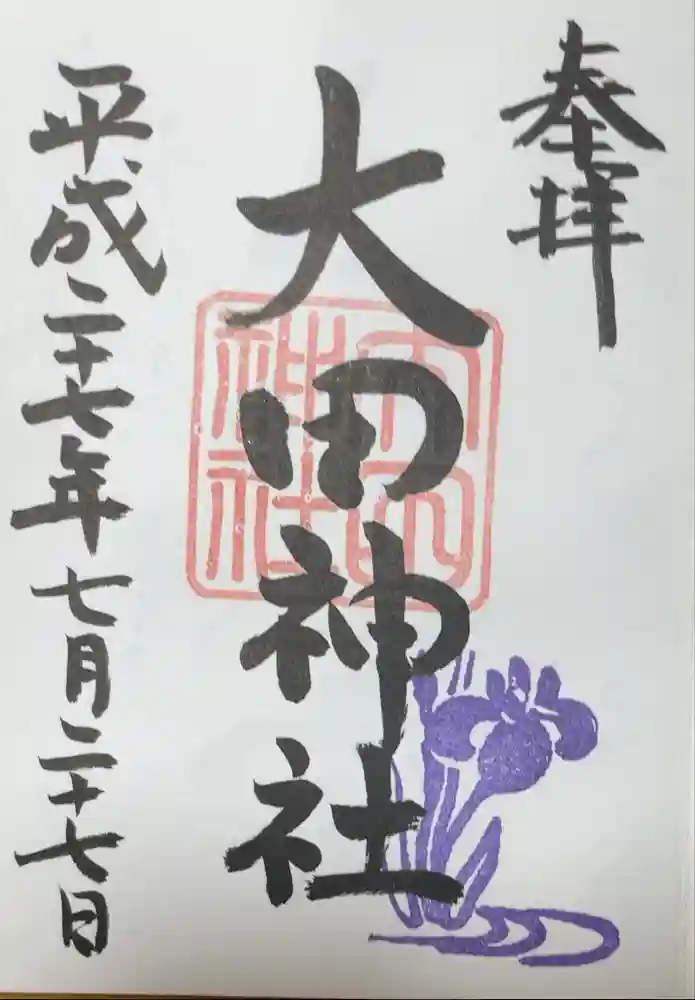 奉拝
大田神社
大田神社
平成二十七年七月二十七日